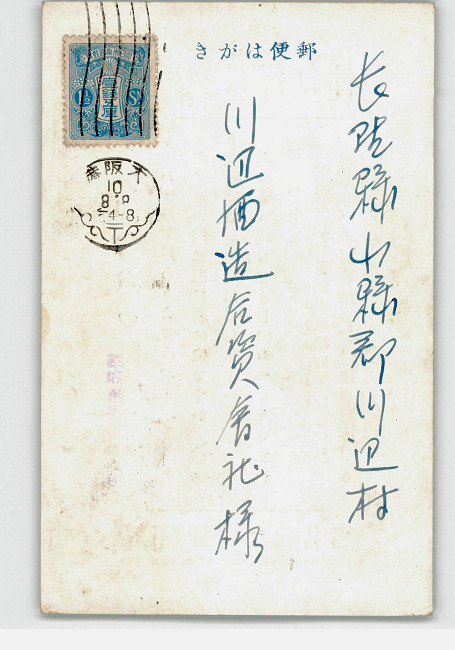 郵便はがき
長野縣小縣郡川辺村
川辺酒造合資會社様
1½
Sn
大阪
10